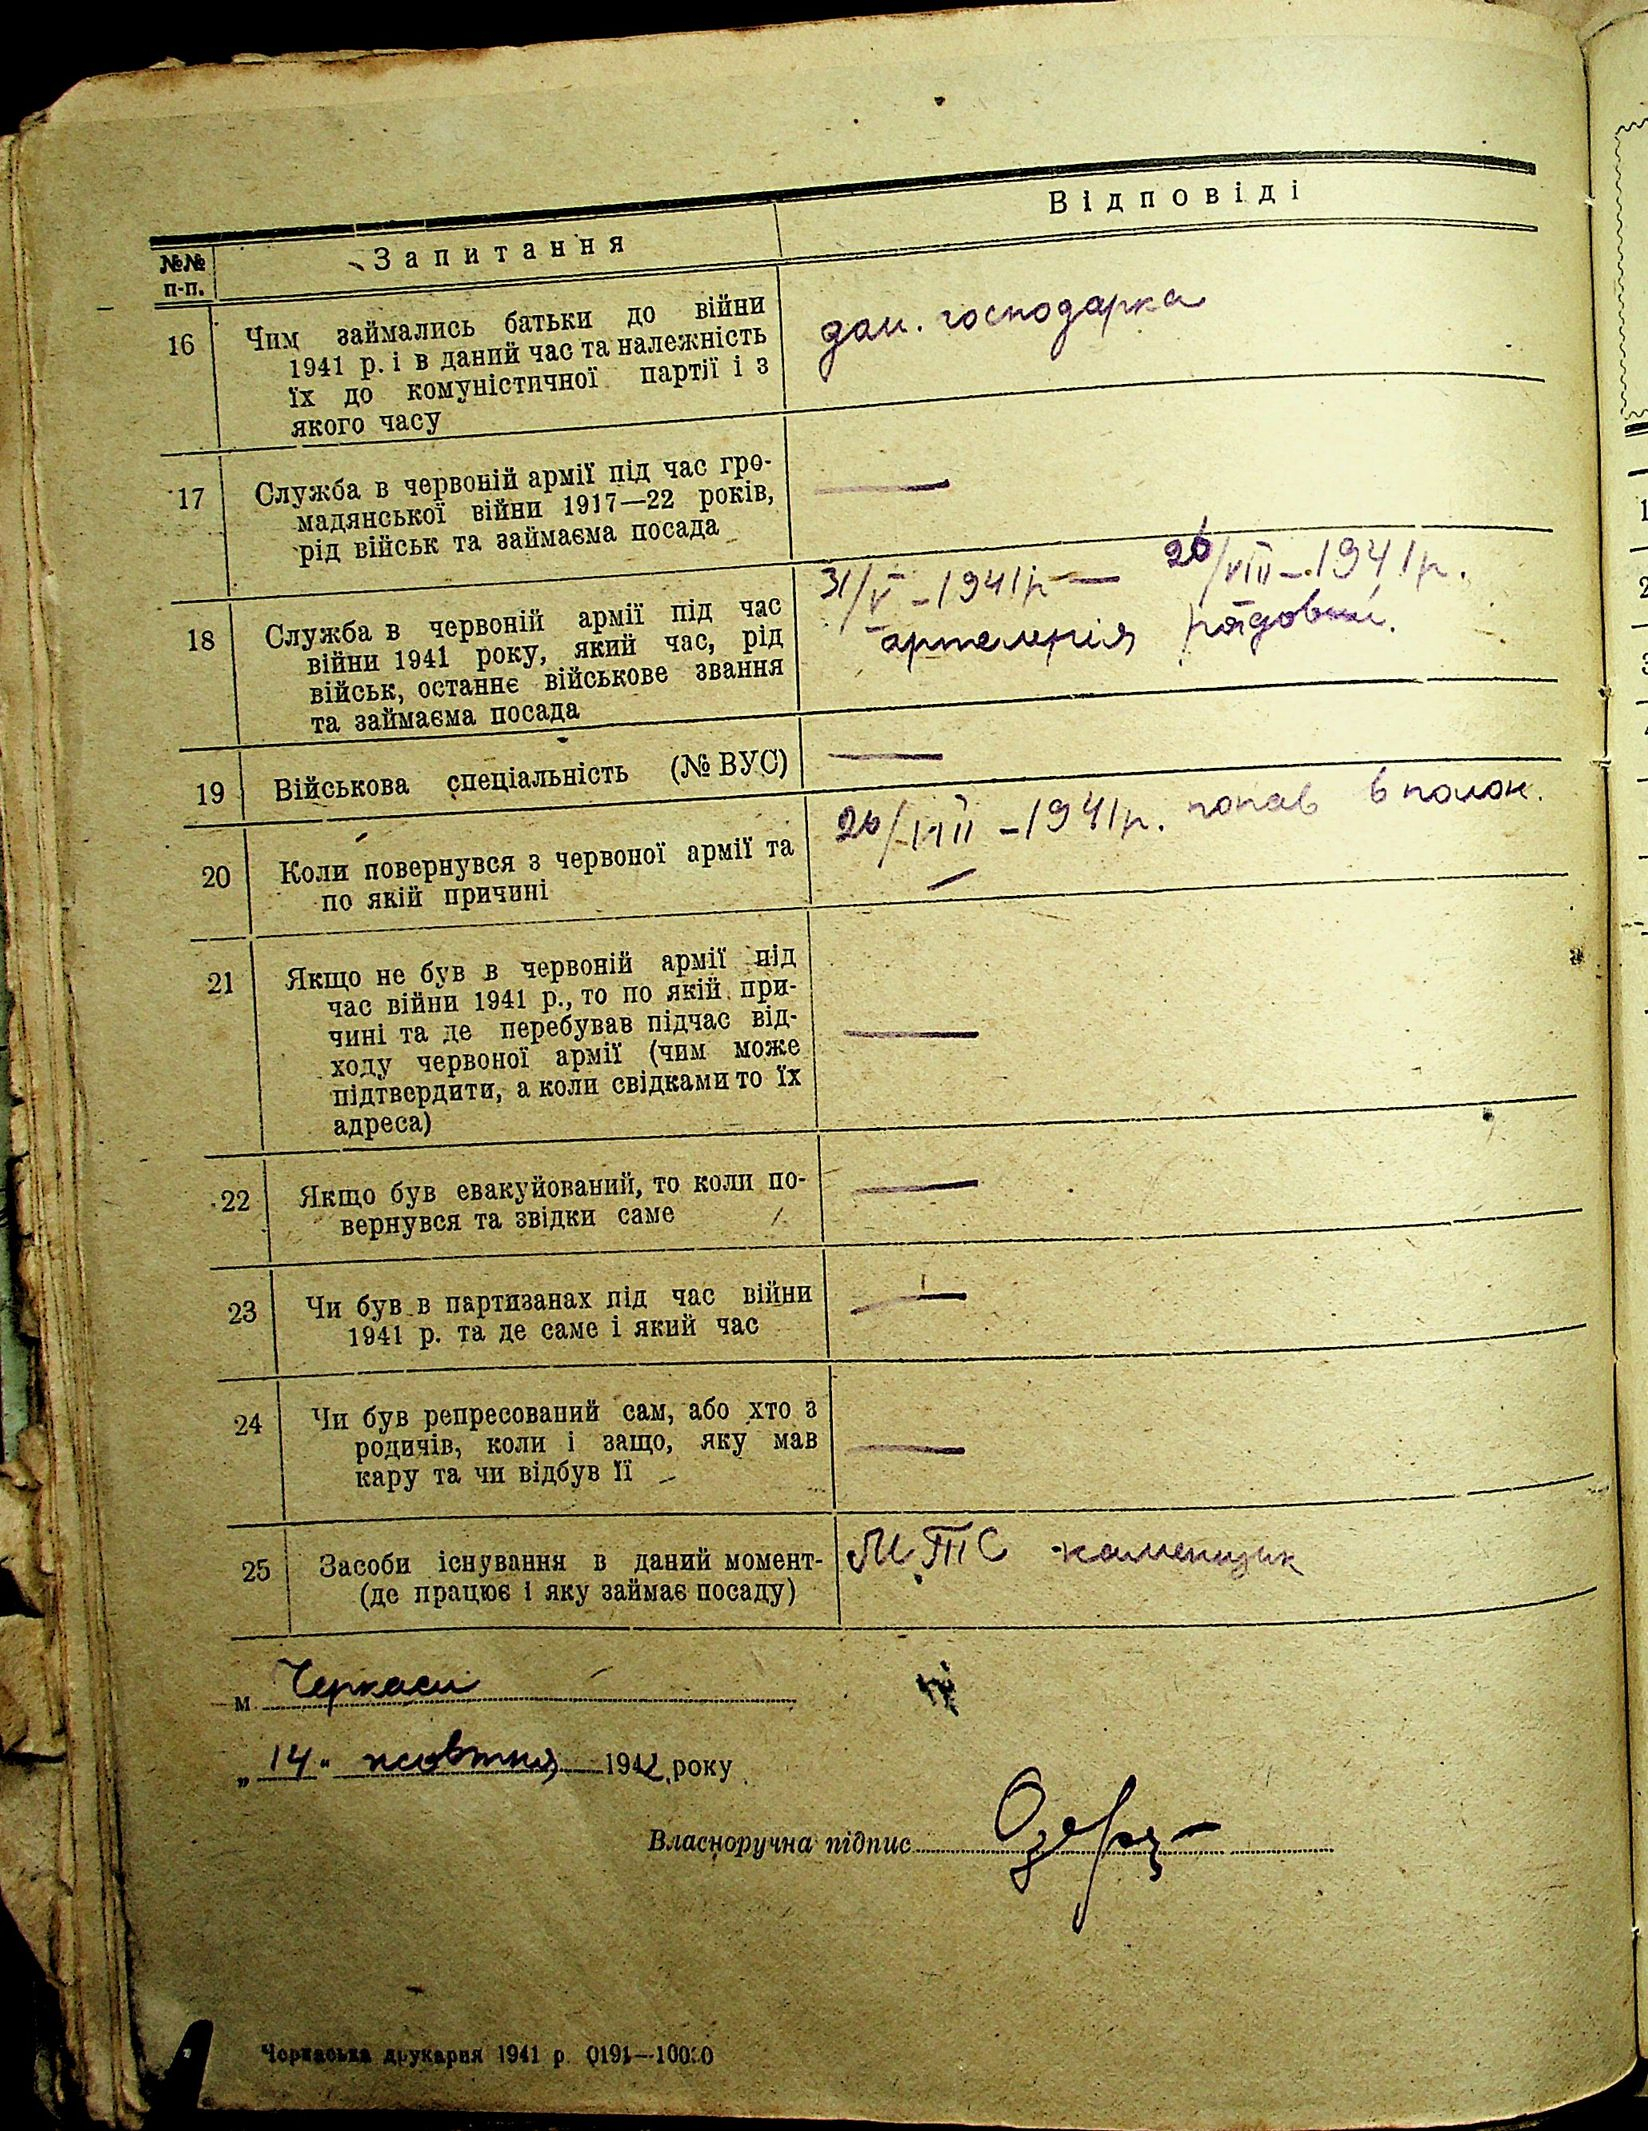 №№ п-п. Запитання Відповіді
16 Чим займались батьки до війни
1941 р. і в даний час та належність
їх до комуністичної партії і з
якого часу
дом. господарка
17 Служба в червоній армії під час гро-
мадянської війни 1917—22 років,
рід військ та займаєма посада
—
18 Служба в червоній армії під час
війни 1941 року, який час, рід
військ, останнє військове звання
та займаєма посада
31/V – 1941р — 26/VIII – 1941р.
артелерія рядовий.
19 Військова спеціальність (№ ВУС)
—
20 Коли повернувся з червоної армії та
по якій причині
26/VIII – 1941р. попав в полон.
—
21 Якщо не був в червоній армії під
час війни 1941 р., то по якій при-
чині та де перебував підчас від-
ходу червоної армії (чим може
підтвердити, а коли свідками то їх
адреса)
—
22 Якщо був евакуйований, то коли по-
вернувся та звідки саме
—
23 Чи був в партизанах під час війни
1941 р. та де саме і який час
—
24 Чи був репресований сам, або хто з
родичів, коли і защо, яку мав
кару та чи відбув її
—
25 Засоби існування в даний момент
(де працює і яку займає посаду)
МТС каменщик
м. Черкаси
„14" жовтня 1942 року
Власноручна підпис
Черкаська друкарня 1941 р. 0191—10000